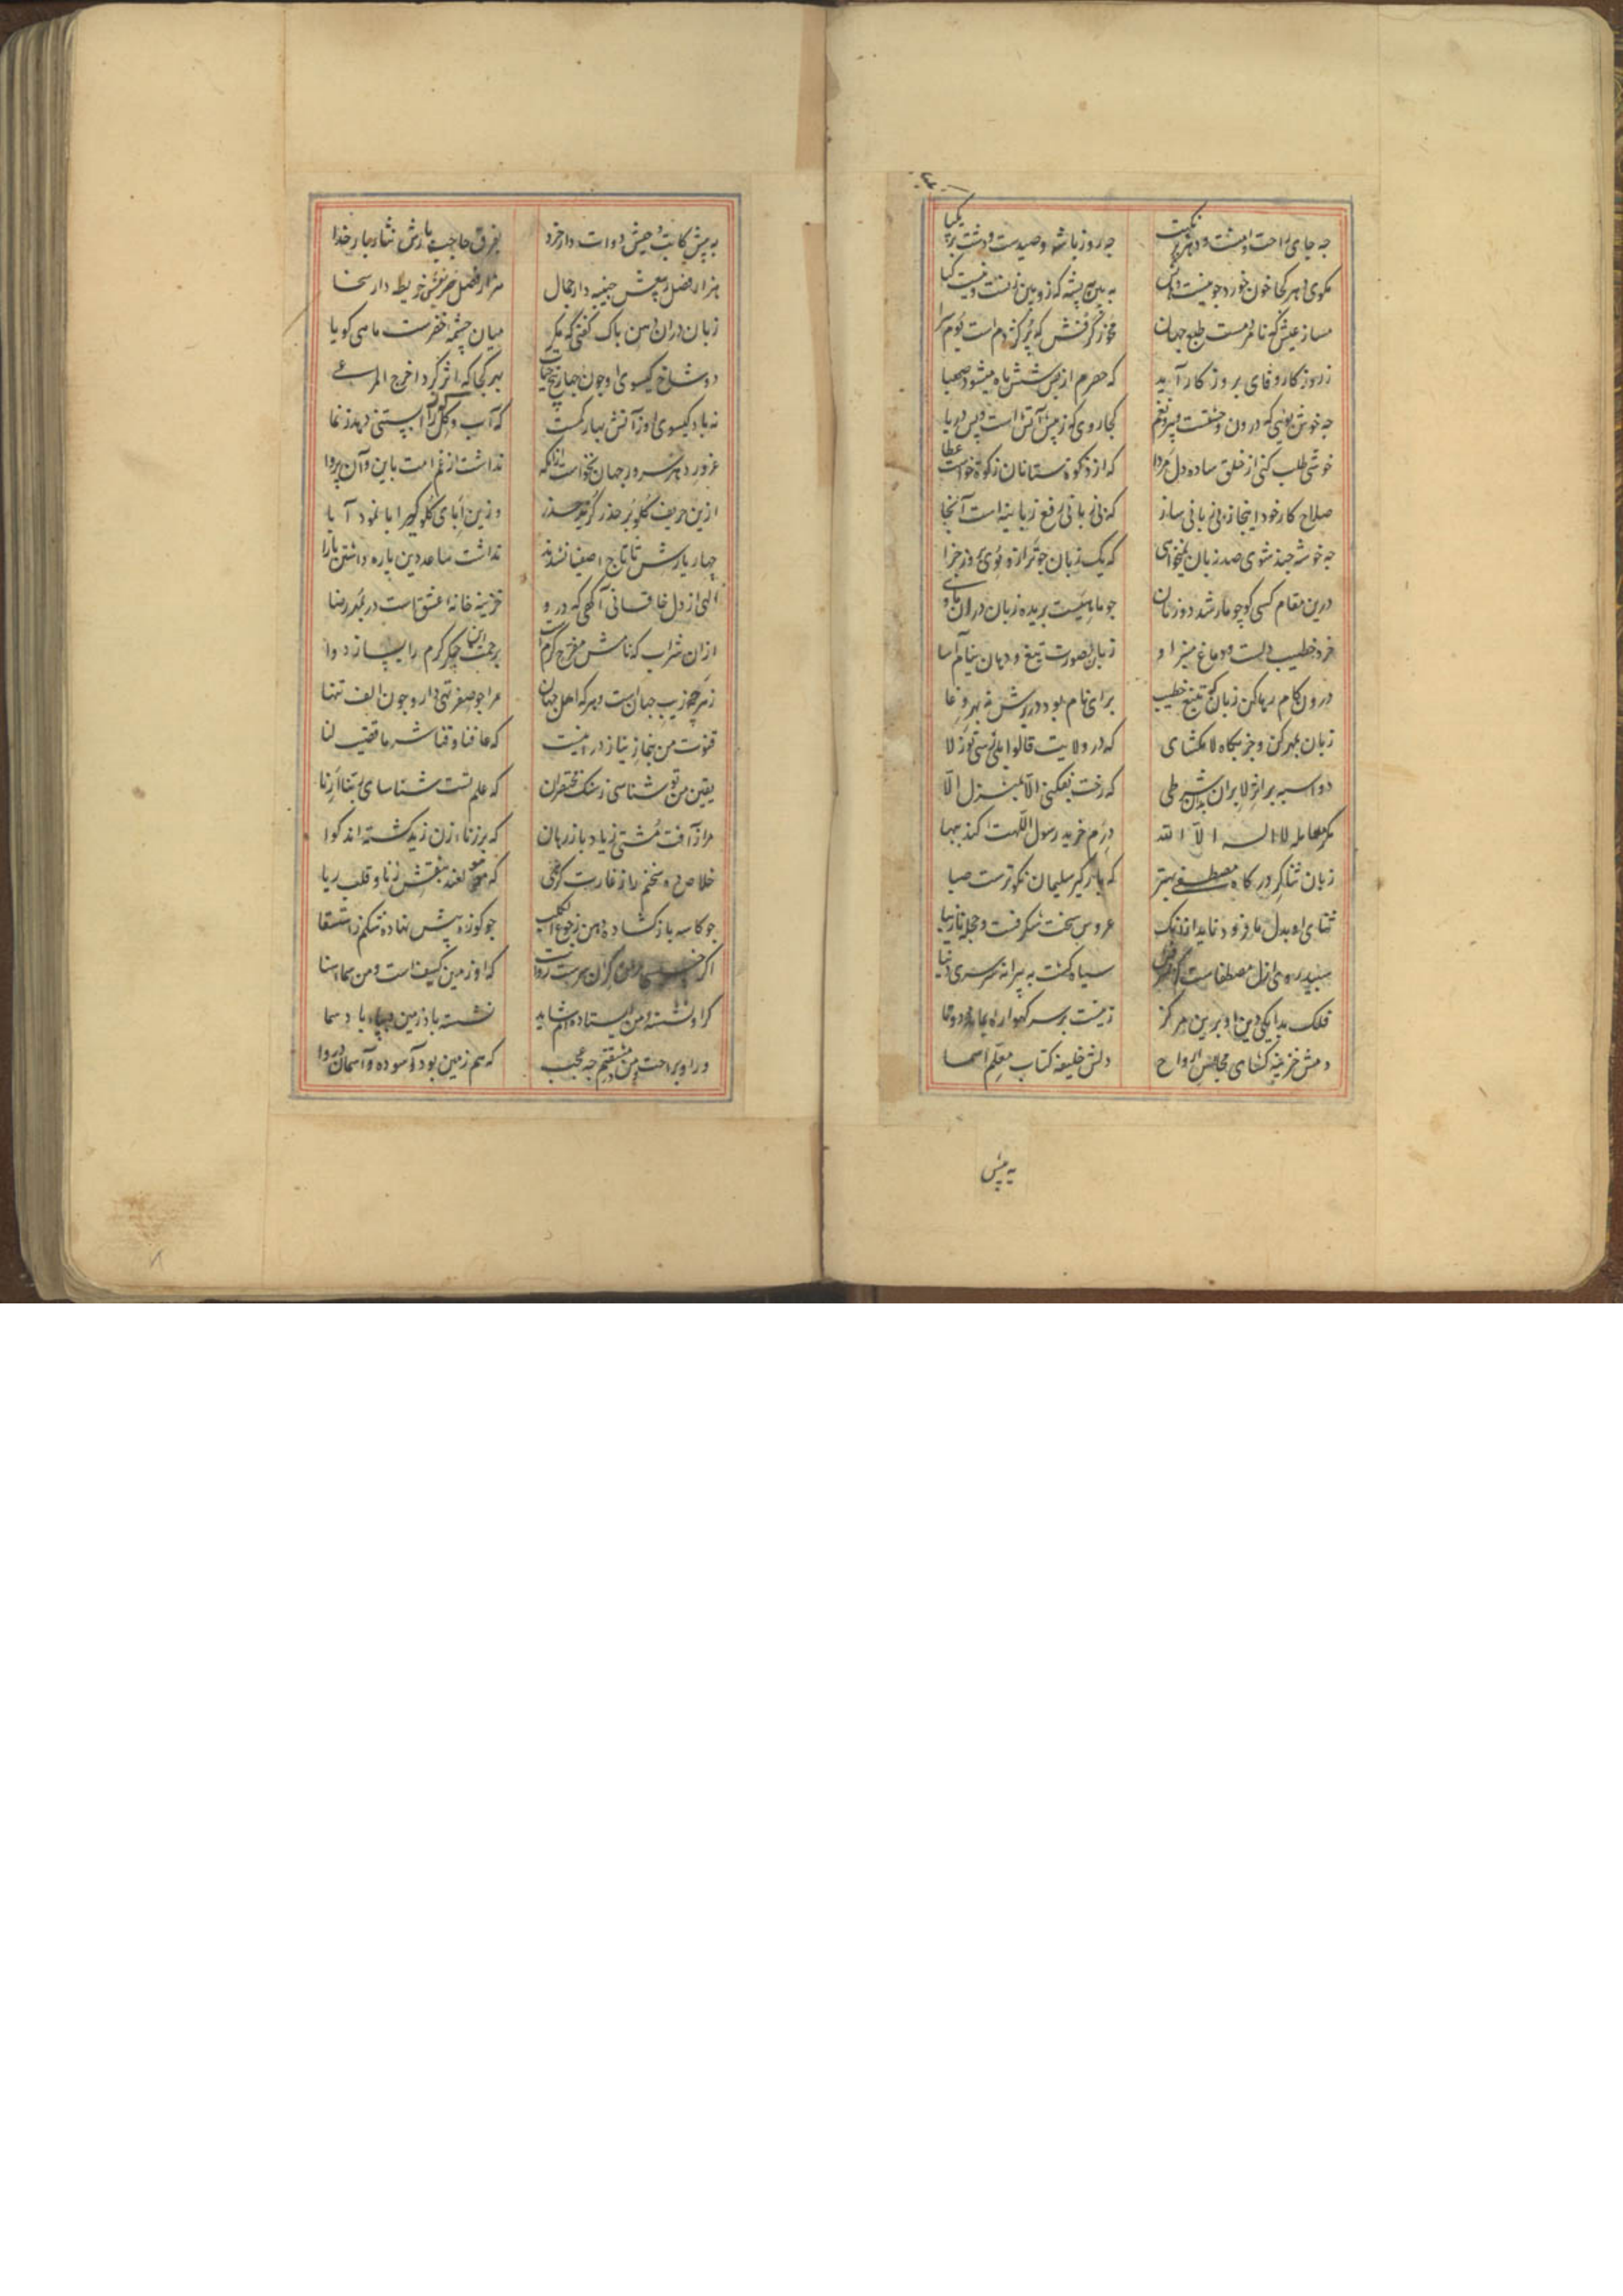 چه جای راحت و امنست و دهر پر نکبت چه روز باشه و صیدست و دشت پر نکبا
مکوی دهر کجا خون خورد چو نیست به بین به پشه که زوبین زنست و نیست کیا
مساز عیش که نامردمست طبع جهان مخور کرفس که پر کژدم است بوم سرا
ز روزکار وفای بروزکار آید که حصرم از پس شش ماه میشود صهبا
چه خوش بوئی که درون وحشتست و بیرون غم کجا روی که ز پیش آتش است و پس دریا
خوشی طلب کنی از خلق ساده دل مردا که از زکوة ستانان زکوة خواست عطا
صلاح کار خود اینجا ز بی زبانی ساز که بی زبانی رفع زبانیه است آنجا
چه خوشه چند شوی صد زبان نمیخواهی که یک زبان چو ترازو بوی بروز جزا
درین مقام کسی کو چو مار شد دو زبان چو ماهیست بریده زبان در آن ماوی
خرد خطیب دلست و دماغ منبر او زبان بصورت تیغ و دهان نیام آسا
درون کام رها کن زبان که تیغ خطیب برای نام بود در برش نه بهر وغا
زبان بمهر کن و جز بگاه لا مکشای که در ولایت قالوا بلی رسی تو ز لا
دو اسبه بر اثر لا بران بدان شرطی که رخت نفکنی الا بمنزل الا
مکر معامله لا اله الا الله درم خرید رسول اللهت کند ببها
زبان ثناکر درکاه مصطفی بهتر که بارگیر سلیمان نکوترست صبا
ثنای او بدل ما فرو نیاید ازانک عروس سخت شکرفست و حجله نازیبا
سپیدروی ازل مصطفاست سیاه کشت به پیرانه سر سر دنیا
فلک بدایکی دین او برین مرکز زنیست بر سر کهواره بمانده دو تا
دمش خزینه کشای مجاهز ارواح دلش خلیفه کتاب معلم اسما
به پیش
به پیش کاتب وحیش دوات دار خرد بفرق حاجب بارش نثار بار خدا
هزار فضل ربیعش جنیبه دار جمال هزار فضل خریفش خریطه دار سخا
زبان در آن دهن پاک کفتی که مکر میان چشمه خضرست ماهی کویا
دو شاخ کیسوی او چون چهار بیخ حیات بهر کجا که اثر کرد اخرج المرعی
نه باد کیسوی او ز آتش بهار کمست که آب و کل را آبستنی دهد ز نما
غرور دهر و سرور جهان نخواست ازانکه نداشت از غم امت باین و آن پروا
ازین حریف کلوبر حذر کزید حذر وزین ابای کلوکیر ابا نمود آبا
چهار یارش تا تاج اصفیا نشدند نداشت ساعد دین یاره داشتن یارا
الهی از دل خاقانی آگهی که درو خزینه خانه عشقست در بمهر رضا
از آن شراب که نامش مفرح کرمست برحمت این جکر کرم را بساز دوا
ز هرچه زیب جهان است و هر که اهل جهان مرا چو صفر تهی دار و چون الف تنها
قنوت من بنماز نیاز در اینست که عافنا وقنا شر ما قضیت لنا
یقین من تو شناسی ز شک مختصران که علم تست شناسای ربنا ارنا
مرا ز آفت مشتی زیاد باز رهان که بر زنای زن زید کشته اند کوا
خلاص ده سخنم را ز غارت کرهی که مولعند بنقش زنا و قلب ریا
چو کاسه باز کشاده دهن ز جوع الکلب چو کوزه پیش نهاده شکم ز استسقا
که او زمین کثیف است و من سماء سنا
کر او نشسته و من ایستاده ام شاید نشسته باد زمین و بپای باد سما
ور او براحت و من در مشقتم چه عجب که هم زمین بود آسوده و آسمان دروا